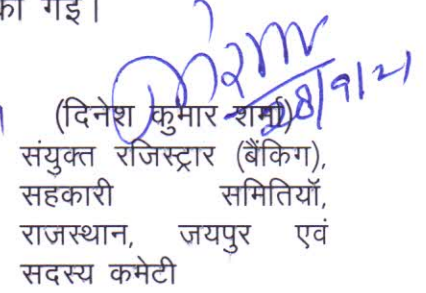 की गई।
28/9/21
(दिनेश कुमार शर्मा)
संयुक्त रजिस्ट्रार (बैंकिग),
सहकारी समितियॉ,
राजस्थान, जयपुर एवं
सदस्य कमेटी